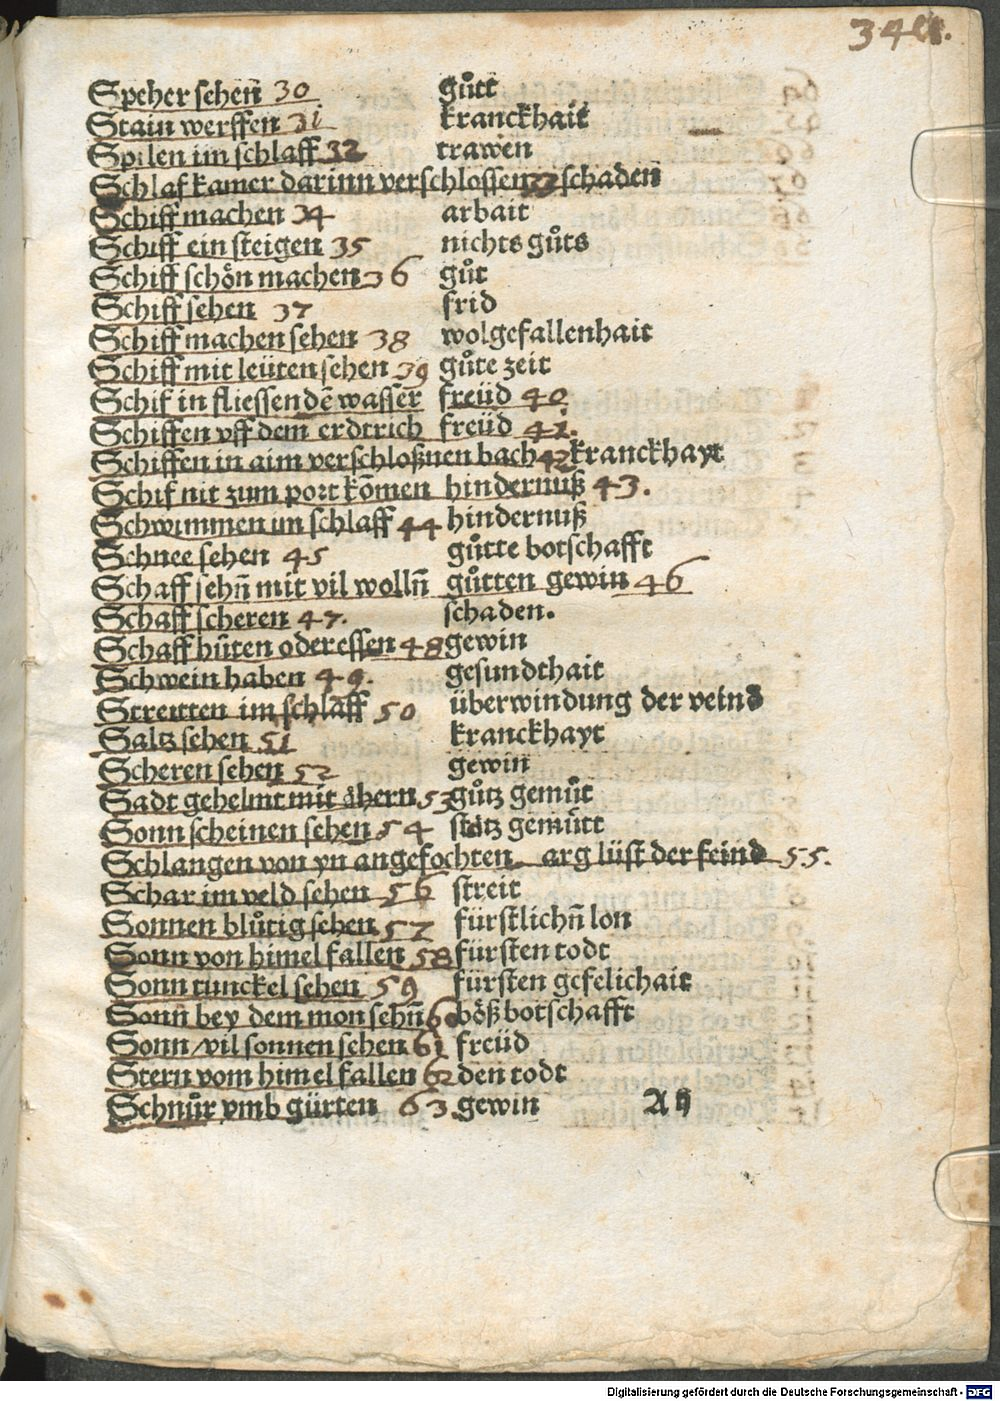 34
Speher sehen 30 gůtt
Stain werffen 31 kranckhait
Spilen im schlaff 32 trawen
Schlaf kamer darinn verschlossen 33 schaden
Schiff machen 34 arbait
Schiff ein steigen 35 nichts gůts
Schiff schön machen 36 gůt
Schiff sehen 37 frid
Schiff machen sehen 38 wolgefallenhait
Schiff mit leüten sehen 39 gůte zeit
Schif in fliessendē wasser freüd 40
Schiffen vff dem erdtrich freüd 41.
Schiffen in aim verschloßnen bach 42 kranckhayt
Schif nit zum port kōmen hindernuß 43.
Schwimmen im schlaff 44 hindernuß
Schnee sehen 45 gůtte botschafft
Schaff sehn̄ mit vil wolln̄ gůtten gewin 46
Schaff scheren 47. schaden.
Schaff hüten oder essen 48 gewin
Schwein haben 49. gesundthait
Streitten im schlaff 50 überwindung der veind
Saltz sehen 51 kranckhayt
Scheren sehen 52 gewin
Sadt gehelmt mit ähern 53 gůtz gemůt
Sonn scheinen sehen 54 stätz gemütt
Schlangen von yn angefochten arg lüst der feind 55.
Schar im veld sehen 56 streit
Sonnen blůtig sehen 57 fürstlichn̄ lon
Sonn von himel fallen 58 fürsten todt
Sonn tunckel sehen 59 fürsten gefelichait
Sonn bey dem mon sehn̄ 60 böß botschafft
Sonn/vil sonnen sehen 61 freüd
Stern vom himel fallen 62 den todt
Schnůr vmb gürten 63 gewin A ij
Digitalisierung gefördert durch die Deutsche Forschungsgemeinschaft - DFG